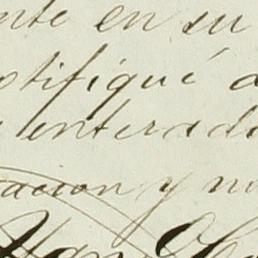 nte en su
otifiqué a
enterad
acion y no